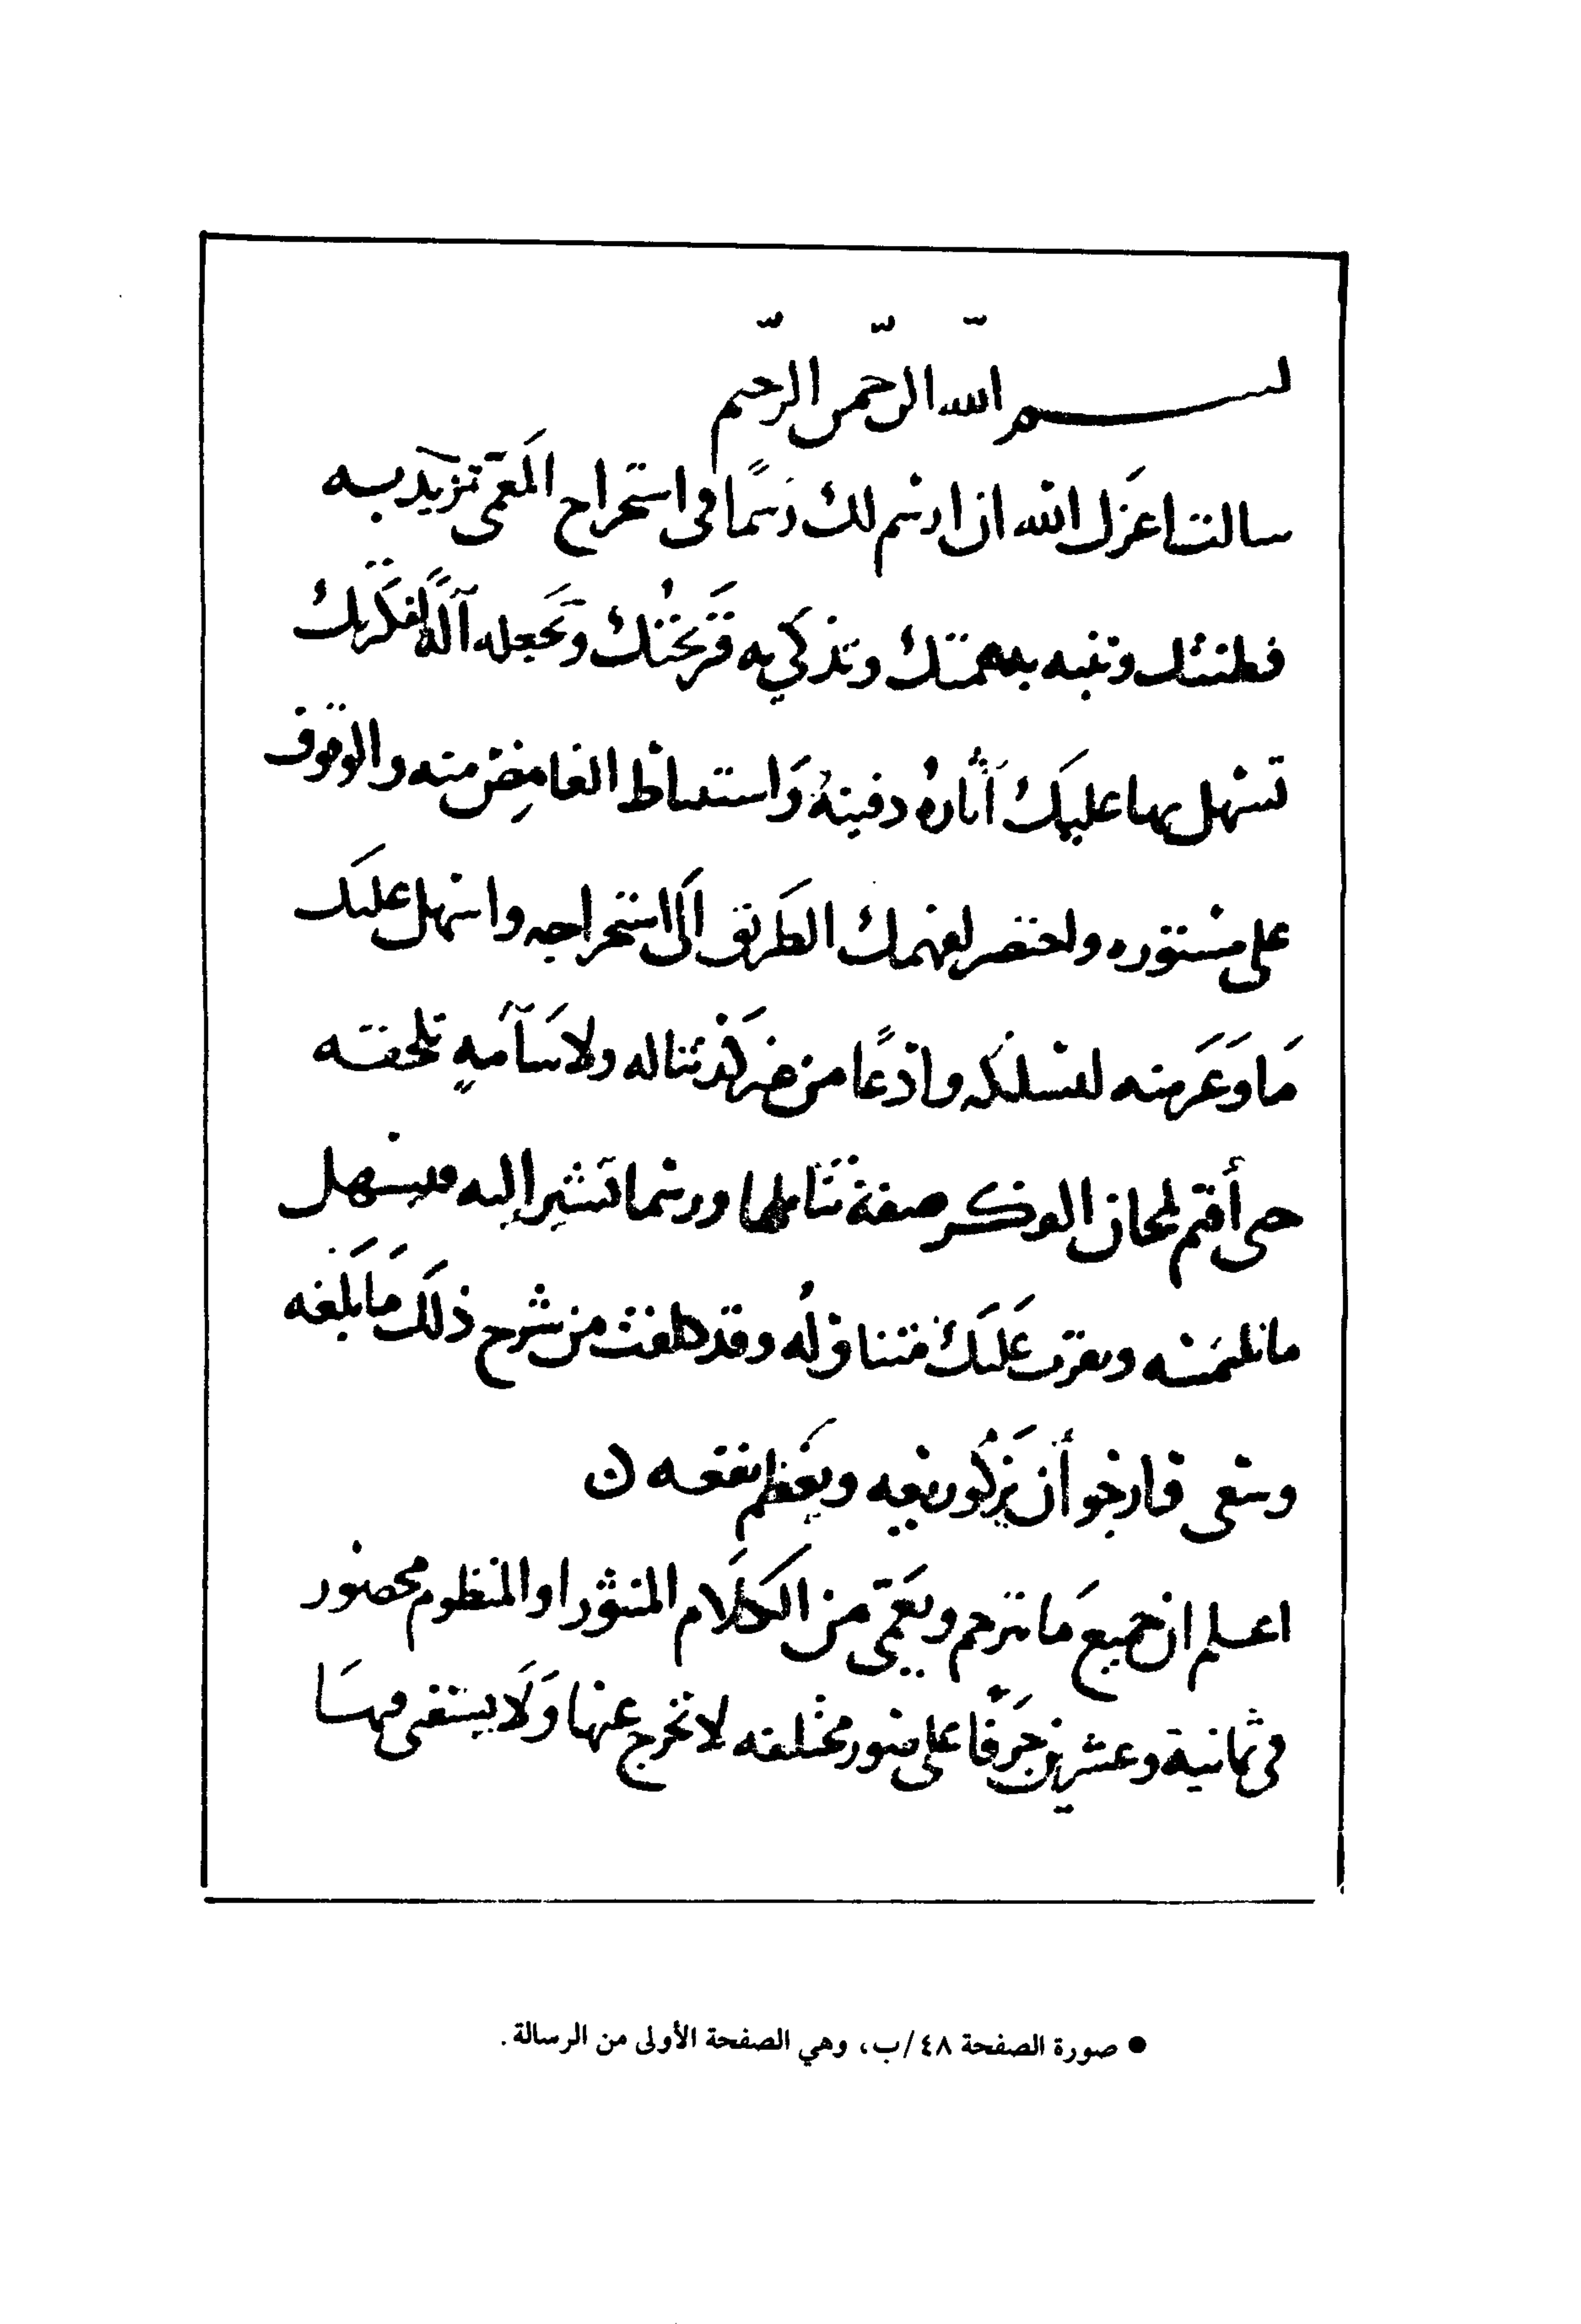 بسم الله الرحمن الرحيم
سالت اعزك الله ان ارسم لك رسمًا في استخراج المعمّى تزيد به
فطنتك وتنبه به همتك وتذكي به قريحتك وتجعله آلةً لفكرتك
تسهل بها عليك اثارة دفينه واستنباط الغامض منه والوقوف
على مستوره واختصر لفهمك الطريق الى استخراجه واسهل عليك
ما وعر منه لتسلكه وادعًا من غير كد تناله ولا سآمةٍ تلحقه
حتى أقيم لك صفة تتأملها ورسما تشير إليه فيسهل
ما تلتمسه ويقرب عليك متناوله وقد بلغت من شرح ذلك ما بلغه
وسعي فارجو أن يزكو ريعه ويعظم نفعه ن
اعلم ان جميع ما يترجم ويعمّى من الكلام المنثور او المنظوم محصور
في ثمانية وعشرين حرفًا على صور مختلفه لا تخرج عنها ولا يستغنى فيها
● صورة الصفحة ٤٨/ب، وهي الصفحة الأولى من الرسالة.